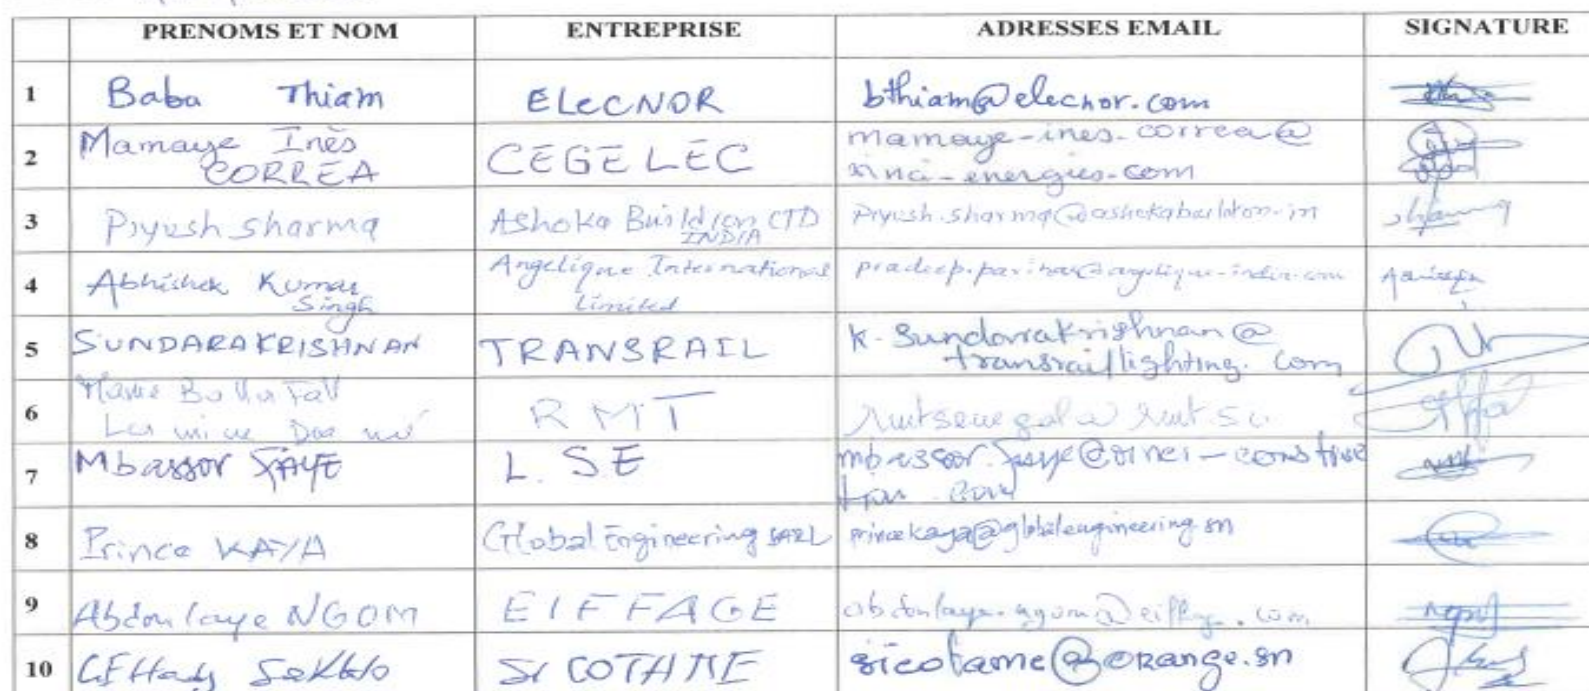 PRENOMS ET NOM ENTREPRISE ADRESSES EMAIL SIGNATURE
1 Baba Thiam ELECNOR bthiam@elecnor.com
2 Mamaye Inès CORREA CEGELEC mamaye-ines.correa@
vinci-energies.com
3 Piyush Sharma Ashoka Buildcon LTD
INDIA piyush.sharma@ashokabuildcon.in
4 Abhishek Kumar
Singh Angelique International
Limited pradeep.parihar@angelique-india.com
5 SUNDARAKRISHNAN TRANSRAIL K.Sundarakrishnan@
transraillighting.com
6 RMT
7 Mbassor FAYE L.SE
8 Prince KAYA Global Engineering SARL princekaya@globalengineering.sn
9 Abdoulaye NGOM EIFFAGE abdoulaye.ngom@eiffage.com
10 SICOTAME sicotame@orange.sn